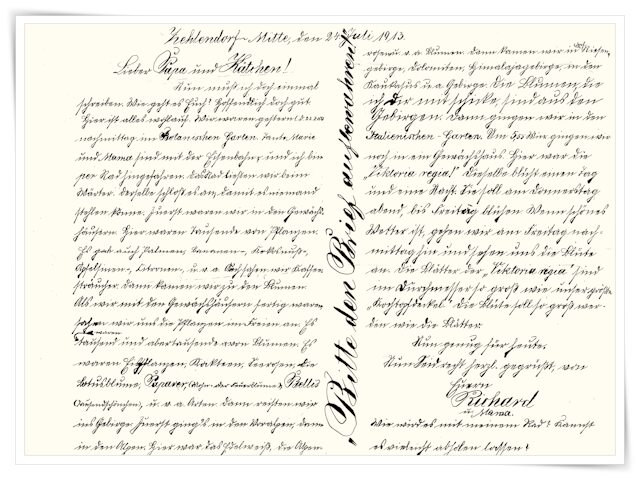 Zehlendorf-Mitte, den 24. Juli 1913.
Lieber Papa und Kätchen!
Nun muß ich doch einmal
schreiben. Wie geht es Euch? Hoffentlich doch gut.
Hier ist alles wohlauf. Wir waren gestern
nachmittag im Botanischen Garten. Tante Marie
und Mama sind mit der Eisenbahn, und ich bin
per Rad hingefahren. Das Rad ließen wir beim
Wärter. Derselbe schloß es an, damit es niemand
stehlen könne. Zuerst waren wir in den Gewächs-
häusern. Hier waren Tausende von Pflanzen.
Es gab auch Palmen, Bananen-, Kokosnuß-,
Apfelsinen-, Zitronen-, u.s.w. Auch sahen wir Kaffee-
sträucher. Dann kamen wir zu den Blumen.
Als wir mit den Gewächshäusern fertig waren,
sahen wir uns die Pflanzen im Freien an. Es
waren
tausend und abertausende von Blumen. Es
waren Kakteen, Seerosen, die
Lotusblume, Papaver, Bellis
(Tausendschönchen), u.s.w. Arten. Dann reisten wir
ins Gebirge. Zuerst ging's in den Voralpen, dann
in den Alpen. Hier war das Edelweiß, die Alpen-
"Bitte den Brief aufbewahren!"
rosen u.s.w. Blumen. Dann kamen wir ins Riesen-
gebirge, Dolomiten, Himalajagebirge, in den
Kaukasus u.s.w. Gebirge. Die Blumen, die
ich Dir mitschicke, sind aus den
Gebirgen. Dann gingen wir in den
Italienischen-Garten. Um Uhr gingen wir
noch in ein Gewächshaus. Hier war die
"Viktoria regia!" Dieselbe blüht einen Tag
und eine Nacht. Sie soll am Donnerstag
abend, bis Freitag blühen. Wenn schönes
Wetter ist, gehen wir am Freitag nach-
mittag hin und sehen uns die Blüte
an. Die Blätter der "Viktoria regia" sind
im Durchmesser so groß wie unser größter
"Kochtopfdeckel". Die Blüte soll so groß wer-
den wie die Blätter.
Nun genug für heute.
Nun Seid recht herzl. gegrüßt, von
Euern
Richard
u. Mama.
Wie wird es mit meinem Rad? Kannst
es vielleicht abholen lassen?